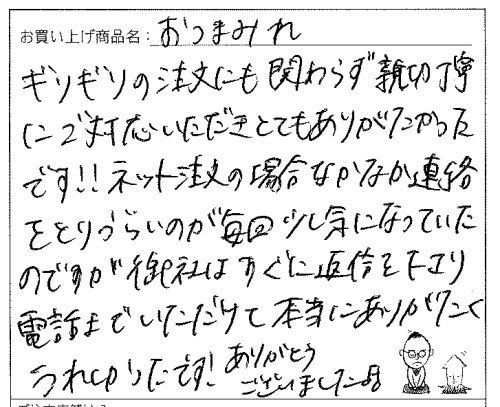 お買い上げ商品名： おつまみれ
ギリギリの注文にも関わらず親切丁寧
にご対応いただきとてもありがたかった
です!!ネット注文の場合なかなか連絡
をとりづらいのが毎回少し気になっていた
のですが御社はすぐに返信を下さり
電話までいただけて本当にありがたく
うれしかったです!ありがとう
ございました